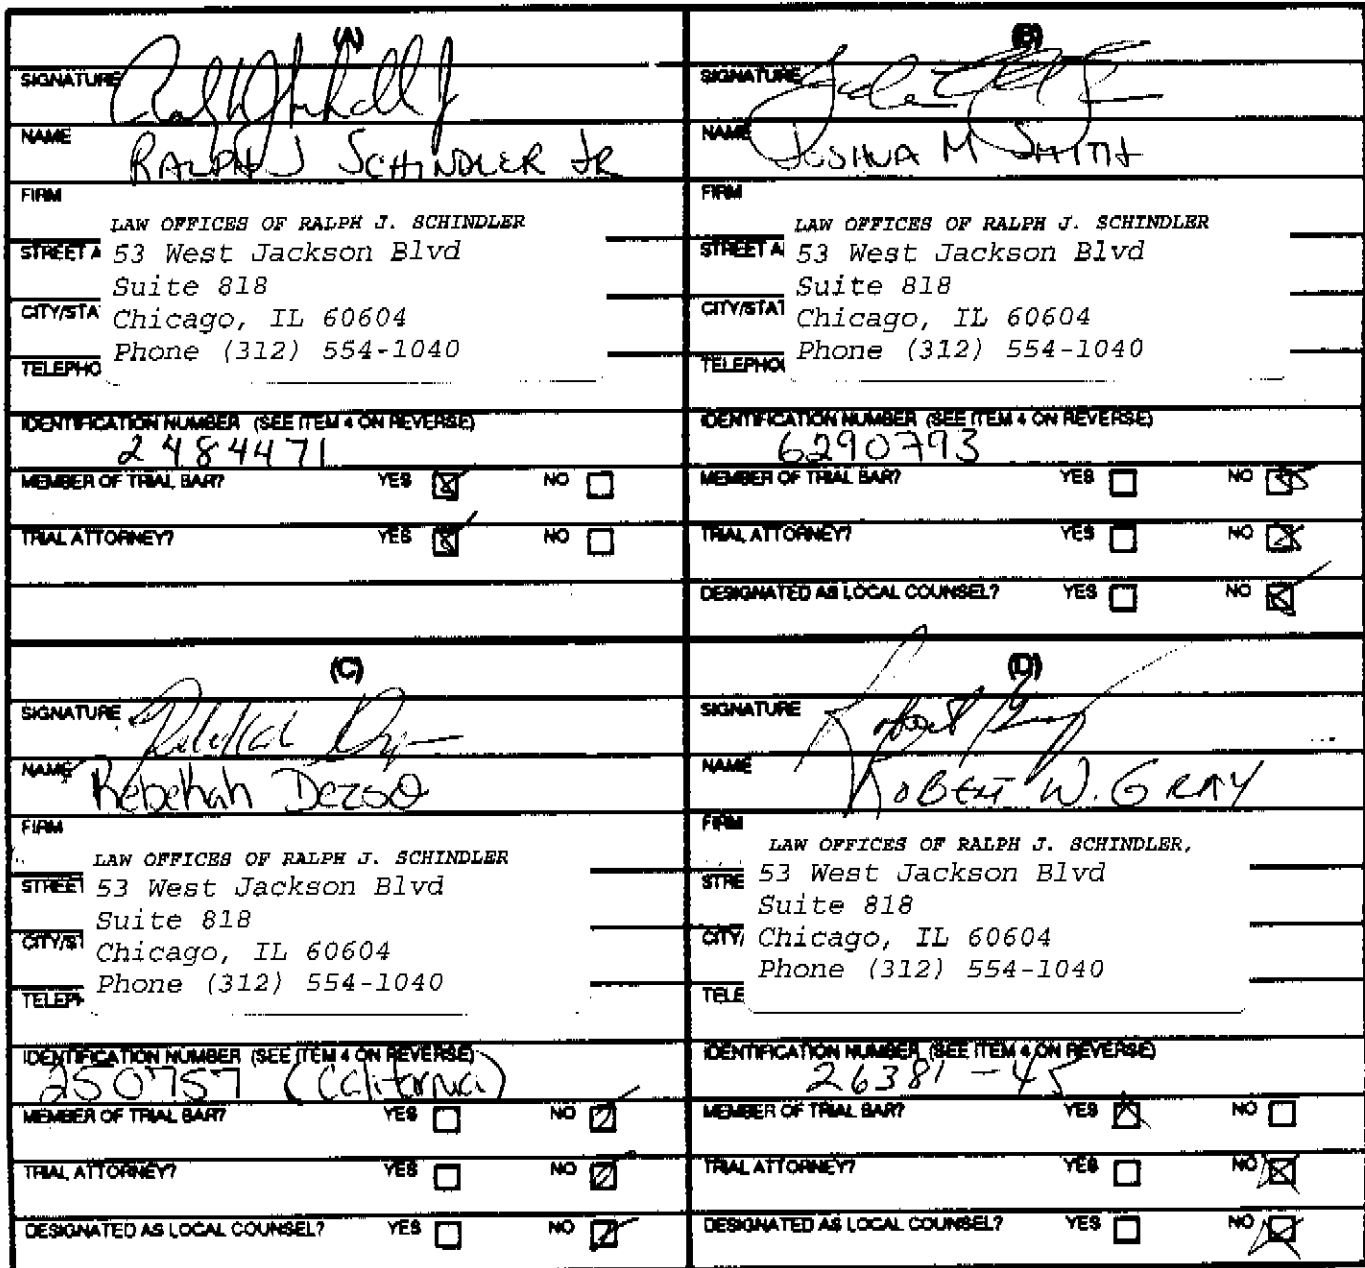 (A)
SIGNATURE
NAME
RALPH J SCHINDLER JR
FIRM
LAW OFFICES OF RALPH J. SCHINDLER
STREET A 53 West Jackson Blvd
Suite 818
CITY/STA Chicago, IL 60604
Phone (312) 554-1040
TELEPHO
IDENTIFICATION NUMBER (SEE ITEM 4 ON REVERSE)
2484471
MEMBER OF TRIAL BAR? YES NO
TRIAL ATTORNEY? YES NO
(B)
SIGNATURE
NAME
JOSHUA M SMITH
FIRM
LAW OFFICES OF RALPH J. SCHINDLER
STREET A 53 West Jackson Blvd
Suite 818
CITY/STAT Chicago, IL 60604
Phone (312) 554-1040
TELEPHO
IDENTIFICATION NUMBER (SEE ITEM 4 ON REVERSE)
6290793
MEMBER OF TRIAL BAR? YES NO
TRIAL ATTORNEY? YES NO
DESIGNATED AS LOCAL COUNSEL? YES NO
(C)
SIGNATURE
NAME
Rebekah Dezso
FIRM
LAW OFFICES OF RALPH J. SCHINDLER
STREET 53 West Jackson Blvd
Suite 818
CITY/ST Chicago, IL 60604
Phone (312) 554-1040
TELEPH
IDENTIFICATION NUMBER (SEE ITEM 4 ON REVERSE)
250757 (California)
MEMBER OF TRIAL BAR? YES NO
TRIAL ATTORNEY? YES NO
DESIGNATED AS LOCAL COUNSEL? YES NO
(D)
SIGNATURE
Robert Gray
NAME
ROBERT W. GRAY
FIRM
LAW OFFICES OF RALPH J. SCHINDLER,
STRE 53 West Jackson Blvd
Suite 818
CITY/ Chicago, IL 60604
Phone (312) 554-1040
TELE
IDENTIFICATION NUMBER (SEE ITEM 4 ON REVERSE)
26381-45
MEMBER OF TRIAL BAR? YES NO
TRIAL ATTORNEY? YES NO
DESIGNATED AS LOCAL COUNSEL? YES NO